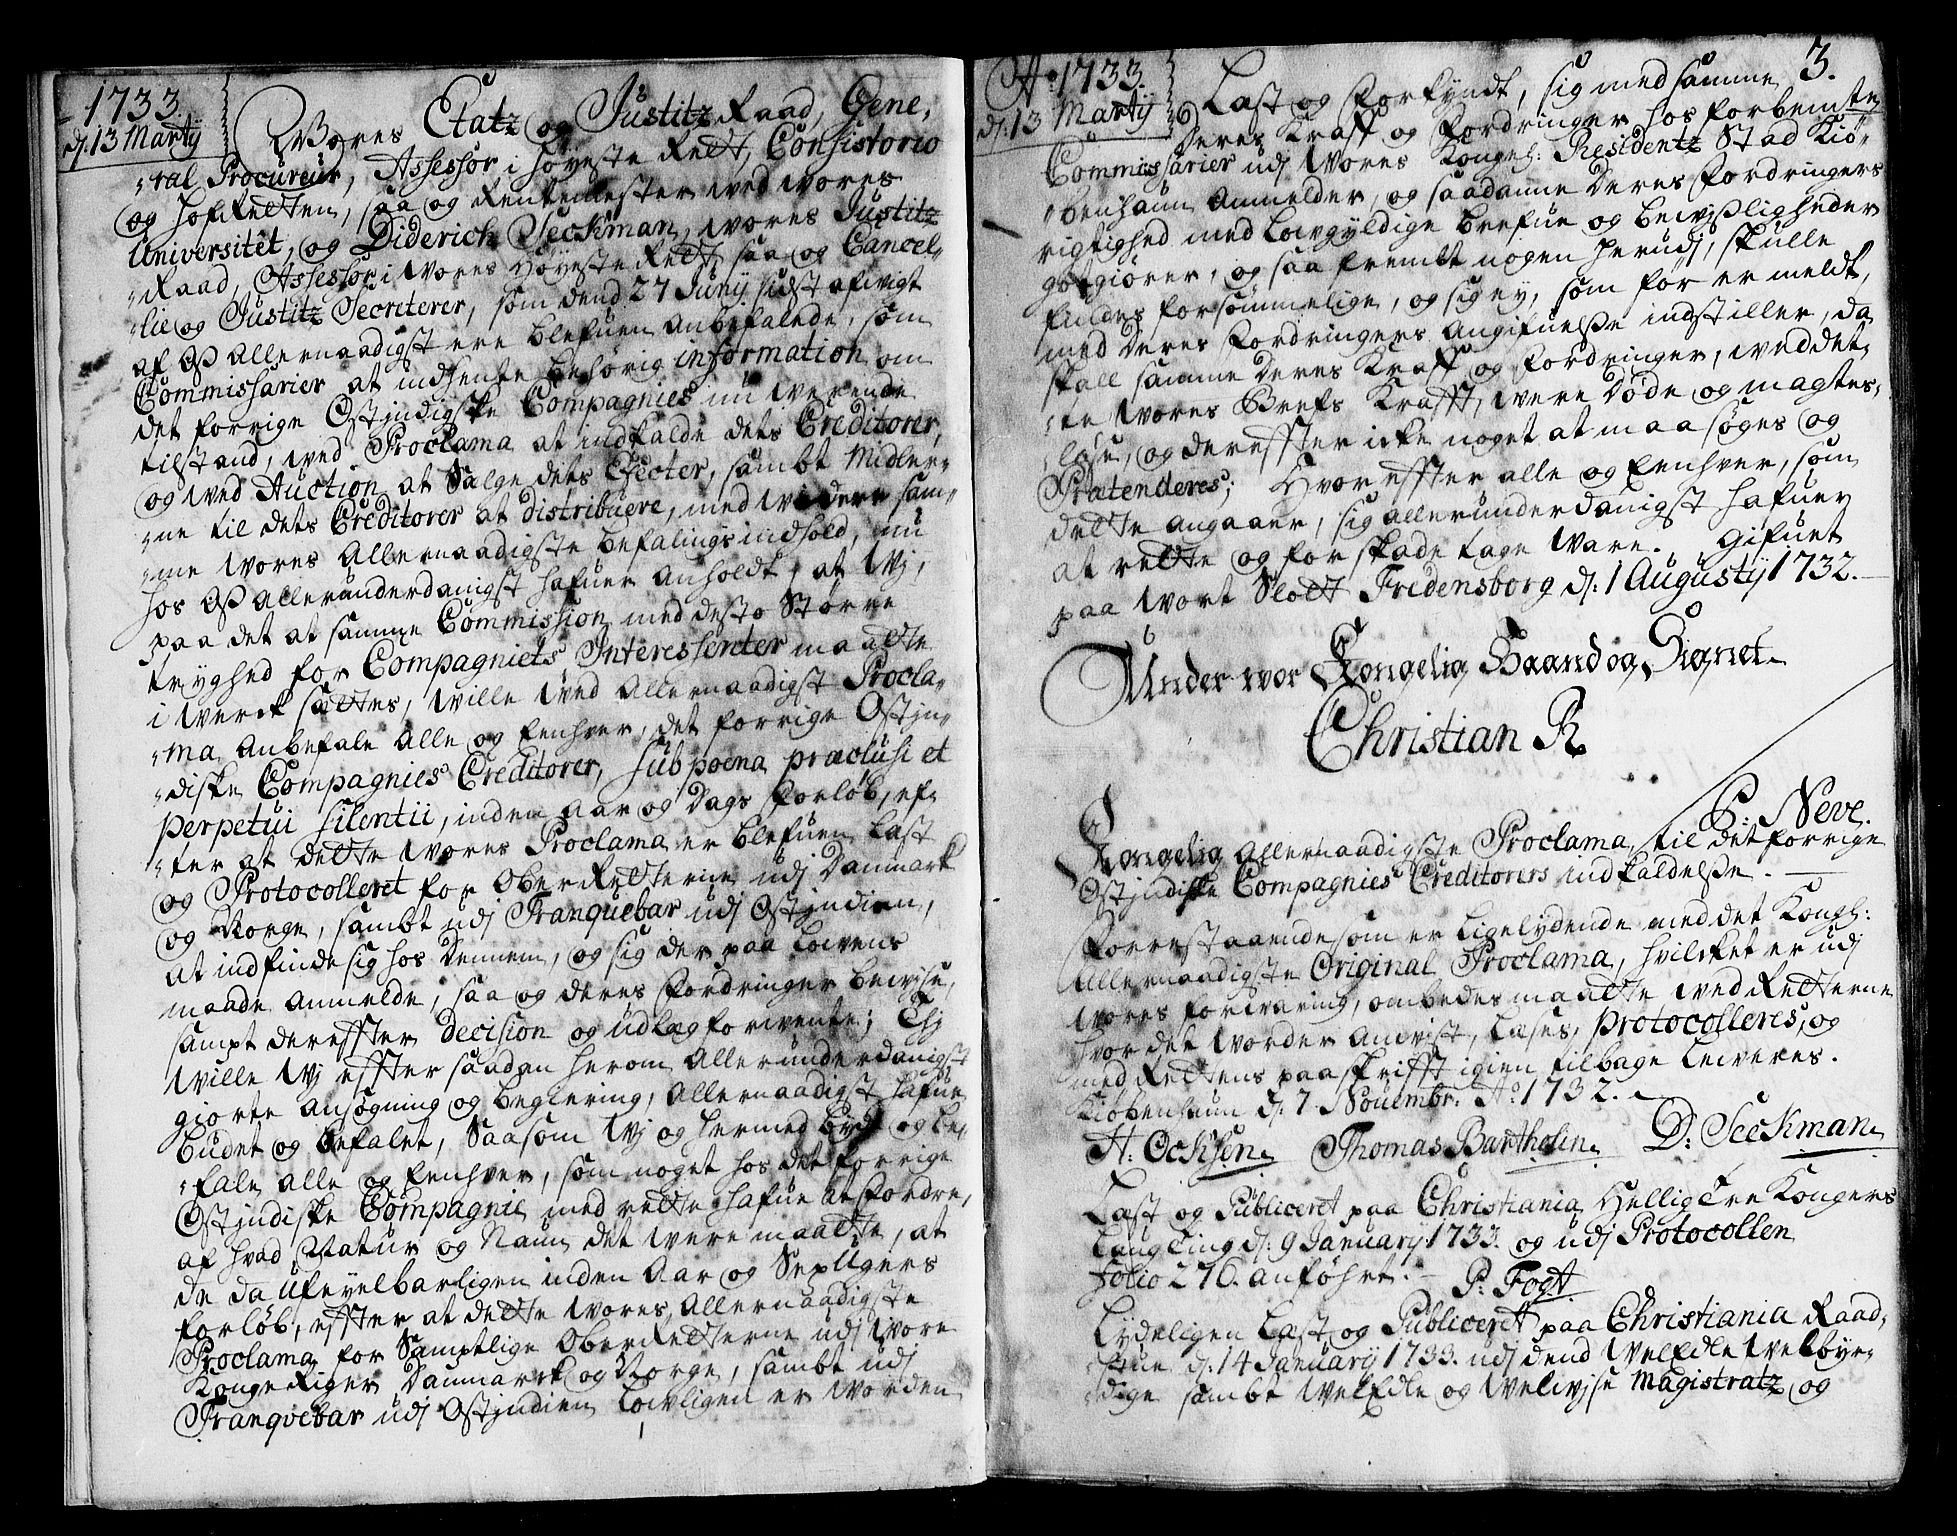 1733
d. 13 Martÿ
Wores Etatz og Justitz Raad, Gene,
"ral Procureur, Assessor i Høyeste Rett, Consistorio
og Hof Retten, saa og Rentemester wed wores
Universitet, og Diderich Seckman, wores Justitz
"Raad, Assessor i Wores Høyeste Rett saa og Cancel-
"lie og Justitz Secriterer, som dend 27 Junÿ sidst afwigt
af Oß Allernaadigst ere blefuen Anbefalede, som
Commissarier at indhente behørig information om
det forrige Ostindiske Compagnies nu werende
tilstand, wed Proclama at indkalde dets Creditorer,
og wed Auction at Sælge dets Efecter, sambt Midler-
"ne til dets Creditorer at distribuere, med widere sam-
"me Wores Allernaadigste befalings indhold, nu
hos Oß allerunderdanigst hafuer Anholdt, at Wj,
paa det at samme Commission med desto Større
tryghed for Compagniets Interessenter maatte
i werck sættes, wille wed Allernaadigst Procla-
"ma Anbefale Alle og Eenhver, det forrige Ostin-
"diske Compagnies Creditorer, sub poena præclusi et
perpetui silentii, inden Aar og Dags Forløb, ef-
"ter at dette Wores Proclama er blefuen Læst
og Protocolleret for OberRetterne udj Danmark
og Norge, sambt udj Tranquebar udj Ostindien,
at indfinde sig hos Dennem, og sig der paa Lowens
maade Anmelde, saa og deres Fordringer bewjse,
sampt derefter Decision og udlæg forwente; Thj
wille Wj effter saadan herom Allerunderdanigst
giorte Ansøgning og begiering, Allernaadigst hafue
budet og befalet, Saasom Wj og hermed byde og be-
"fale Alle og Eenhver, som noget hos det forrige
Ostjndiske Compagnie med rette hafue at Fordre,
af hvad Natur og Naun det were maatte, at
de da ufeyelbarligen inden Aar og Sex Ugers
forløb, effter at dette Wores Allernaadigste
Proclama for Samptlige OberRetterne udj Wore
Konge Riger Danmarck og Norge, sambt udj
Tranquebar udj Ostjndien lowligen er worden
Ao 1733.
d. 13 Martÿ
3.
Læst og Forkyndt, sig med samme
Deres Kraff og Fordringer hos forbemte
Commissarier udj Wores Kongel: Residentz Stad Kiø-
"benhaun Anmelder, og saadanne Deres Fordringers
rigtighed med Lowgyldige brefue og bewjßligheder
godgiører, og saafremt nogen herudj, skulle
findes forsømmelige, og sig ey, som før er meldt,
med Deres Fordringers Angifuelße indstiller, da
skall samme Deres Kraff og Fordringer, wed det-
"te Wores Brefs Krafft, were Døde og magtes-
"løse, og dereffter icke noget at maa søges og
Prætenderes; Hvoreffter alle og Eenhver, som
dette angaaer, sig allerunderdanigst hafuer
at rette og for skade tage ware. Gifuet
paa Wort Slott Fredensborg d. 1 Augustÿ 1732.
Under wor Kongelig Haand og Signet.
Christian R
P: Neve.
Kongelig allernaadigste Proclama, til det forrige
Ostjndiske Compagnies Creditorers indkaldelße.
Forrestaaende som er ligelydende med det Kongl:
Allernaadigste Original Proclama, hvilket er udj
wores forwaring, ombedes maatte wed Retterne
hvor det worder Anwist, læses, protocolleres, og
med Rettens paaskrifft igien tilbage leweres.
Kiøbenhaun d. 7 Nouembr. Ao 1732.
H: Ocksen Thomas Bartholin D: Seckman
Læst og Publiceret paa Christiania Hellig Tre Kongers
Laug Ting d. 9 Januarÿ 1733. og udj Protocollen
Folio 276. anføhrt. P: Fogt
Lydeligen Læst og Publiceret paa Christiania Raad,
"stue d. 14 Januarÿ 1733. udj dend WelEdle Welbyr-
"dige sambt WelEdle og Welwjse Magistratz og